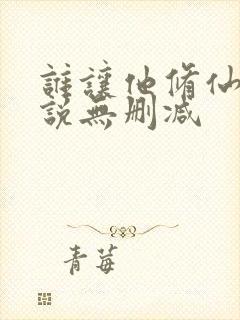 誰讓他脩仙
說無刪減
青莓